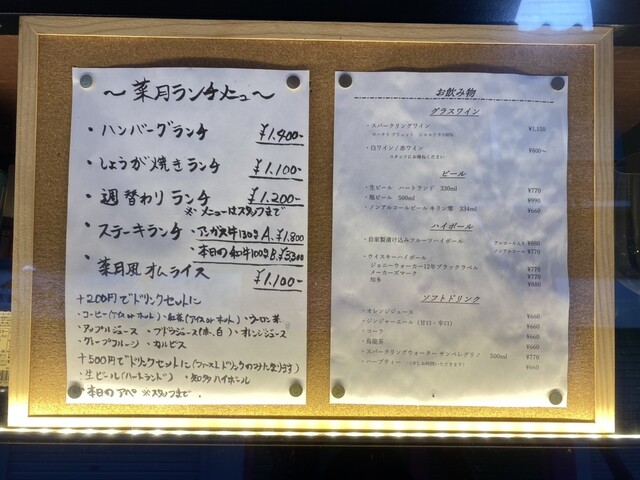 ～ 菜月ランチメニュー ～
・ハンバーグランチ ¥1.400-
・しょうが焼きランチ ¥1.100-
・週替わりランチ ¥1.200-
※メニューはスタッフまで
・ステーキランチ ・アンガス牛130g A. ¥1.800
・本日の和牛100g B. ¥3300
・菜月風オムライス ¥1.100-
+200円でドリンクセットに
・コーヒー(アイス or ホット) ・紅茶(アイス or ホット) ・ウーロン茶
・アップルジュース ・ブドウジュース(赤、白) ・オレンジジュース
・グレープフルーツ ・カルピス
+500円でドリンクセットに(ファーストドリンクのみとなります)
・生ビール(ハートランド) ・知多ハイボール
・本日のアペ ※スタッフまで.
お飲み物
グラスワイン
・スパークリングワイン ¥1,150
・白ワイン/赤ワイン ¥600～
スタッフにお尋ねください
ビール
・生ビール ハートランド 330ml ¥770
・瓶ビール 500ml ¥990
・ノンアルコールビール キリン 334ml ¥660
ハイボール
・自家製漬け込みフルーツハイボール アルコール入り ¥880
ノンアルコール ¥770
・ウイスキーハイボール
ジョニーウォーカー12年ブラックラベル ¥770
メーカーズマーク ¥770
知多 ¥880
ソフトドリンク
・オレンジジュース ¥660
・ジンジャーエール (甘口・辛口) ¥660
・コーラ ¥660
・烏龍茶 ¥660
・スパークリングウォーターサンペレグリノ 500ml ¥770
・ハーブティー ¥660